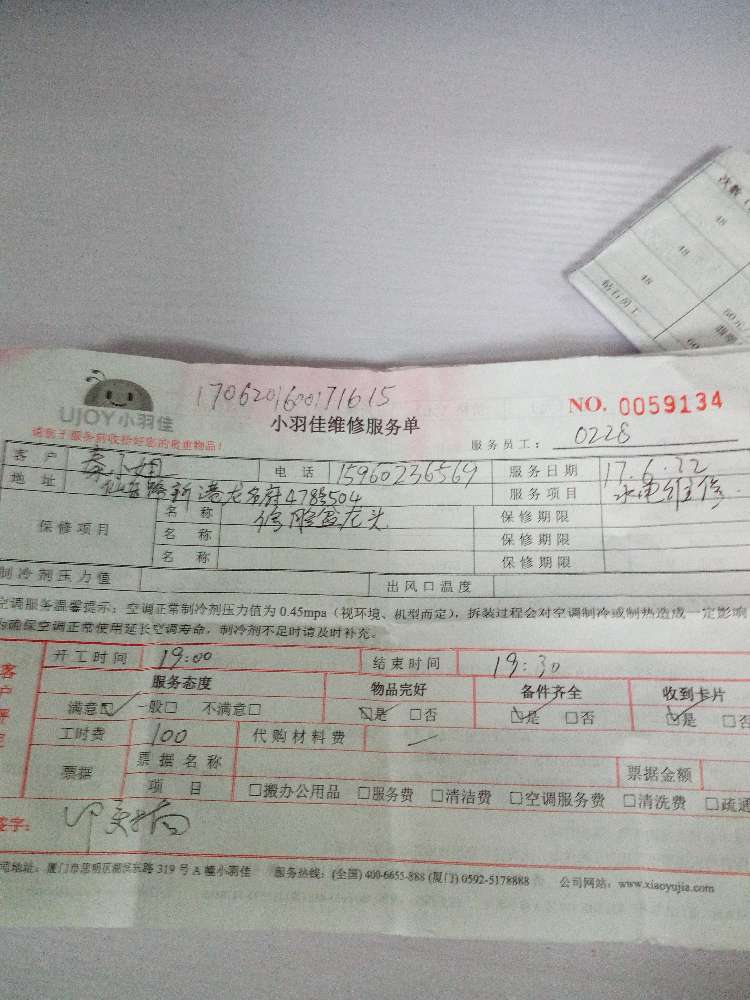 次数
48
48
48
钻石员工
50元
1706201600171615
UJOY小羽佳
NO. 0059134
小羽佳维修服务单
请您于服务前收拾好您的贵重物品!
服务员工: 0228
客户 小姐 电话 15960236569 服务日期 17.6.22
地址 仙岳路新港龙名府478号504 服务项目 水电维修
保修项目 名称 修脸盆龙头 保修期限
名称 保修期限
名称 保修期限
制冷剂压力值 出风口温度
空调服务温馨提示: 空调正常制冷剂压力值为 0.45mpa (视环境、机型而定), 拆装过程会对空调制冷或制热造成一定影响
为确保空调正常使用延长空调寿命, 制冷剂不足时请及时补充。
开工时间 19:00 结束时间 19:30
服务态度 物品完好 备件齐全 收到卡片
满意☑ 一般□ 不满意□ ☑是 □否 ☑是 □否 ☑是 □否
工时费 100 代购材料费 —
票据 票据名称 票据金额
项目 □搬办公用品 □服务费 □清洁费 □空调服务费 □清洗费 □疏通
签字:
地址: 厦门市思明区湖滨东路 319 号 A 幢小羽佳 服务热线: (全国) 400-6655-888 (厦门) 0592-5178888 公司网站: www.xiaoyujia.com